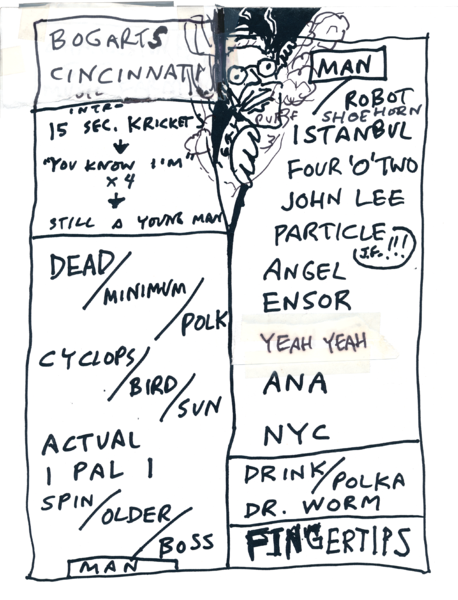 BOGARTS
CINCINNATI
INTRO
15 SEC. KRICKET
"YOU KNOW 'IM"
X 4
STILL A YOUNG MAN
DEAD/
MINIMUM/
POLK
CYCLOPS/
BIRD/
SUN
ACTUAL
1 PAL 1
SPIN/
OLDER/
BOSS
MAN
MAN/
ROBOT
SHOEHORN
ISTANBUL
FOUR 'O' TWO
JOHN LEE
PARTICLE
J.F. !!!
ANGEL
ENSOR
YEAH YEAH
ANA
NYC
DRINK/POLKA
DR. WORM
FINGERTIPS